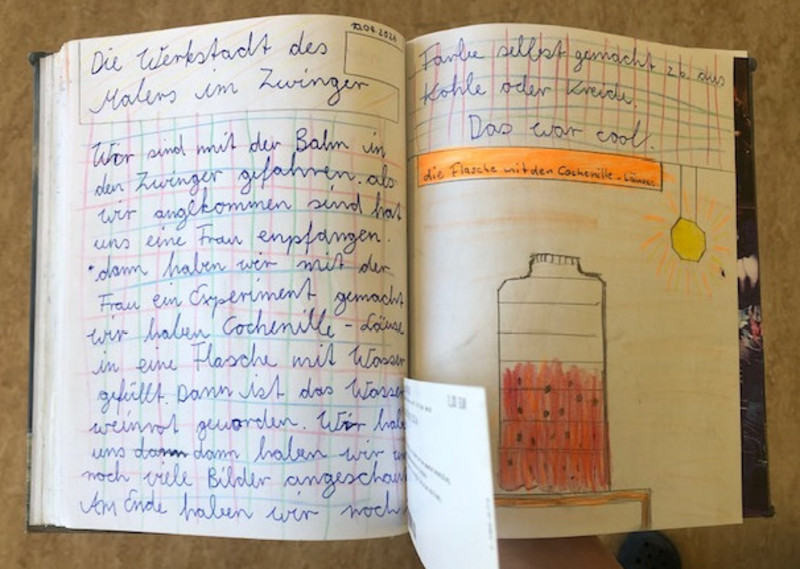 Die Werkstadt des
Malers im Zwinger
Wir sind mit der Bahn in
den Zwinger gefahren. als
wir anglkommen sind hat
uns eine Frau enpfangen.
dann haben wir mit der
Frau ein Experiment gemacht
wir haben Cochenille - Läuse
in eine Flasche mit Wasser
gefüllt. Dann ist das Wasser
weinrot geworden. Wir habe
uns dann dann haben wir un
noch viele Bilder angeschaut
Am Ende haben wir noch
Farbe selbst gemacht z.b. aus
Kohle oder Kreide.
Das war cool.
die Flasche mit den Cochenille - Läusen